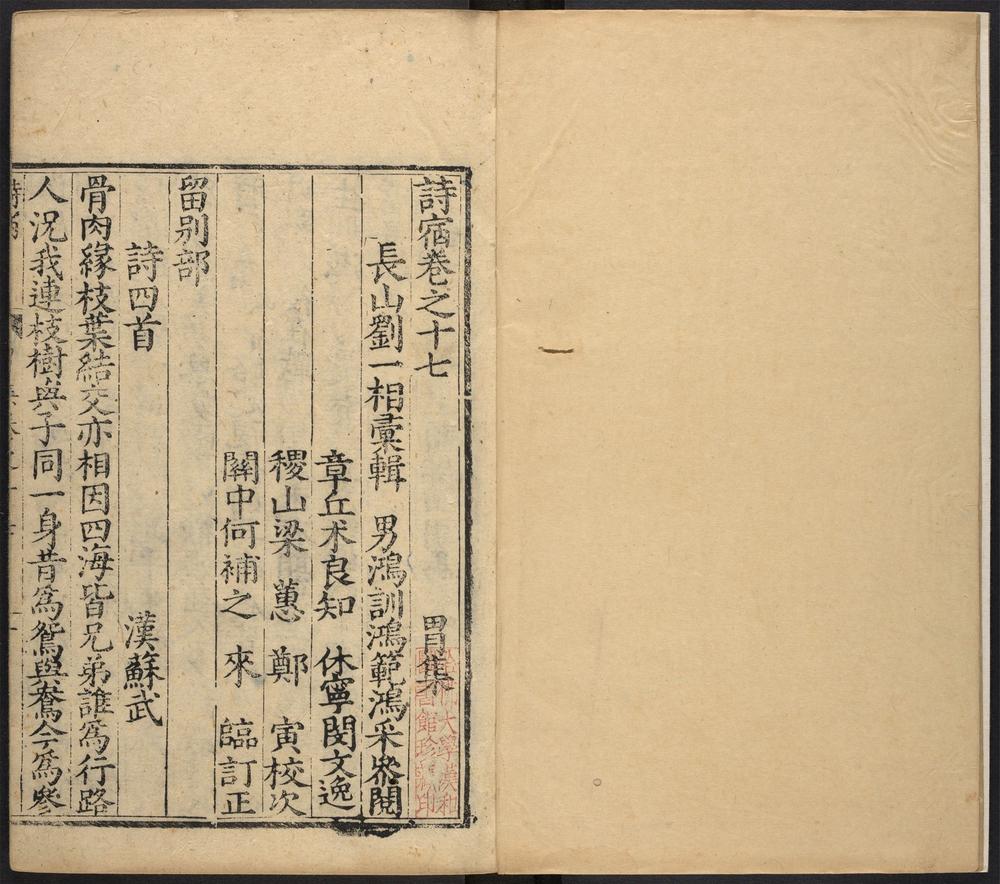 詩宿卷之十七 胃集
長山劉一相彙輯 男鴻訓鴻範鴻采叅閱
章丘朩良知 休寧閔文逸
稷山梁蕙 鄭寅校次
關中何補之 來臨訂正
留别部
詩四首 漢蘇武
骨肉緣枝葉結交亦相因四海皆兄弟誰爲行路
人況我連枝樹與子同一身昔爲鴛與鴦今爲參
大學漢和
圖書館珍藏印